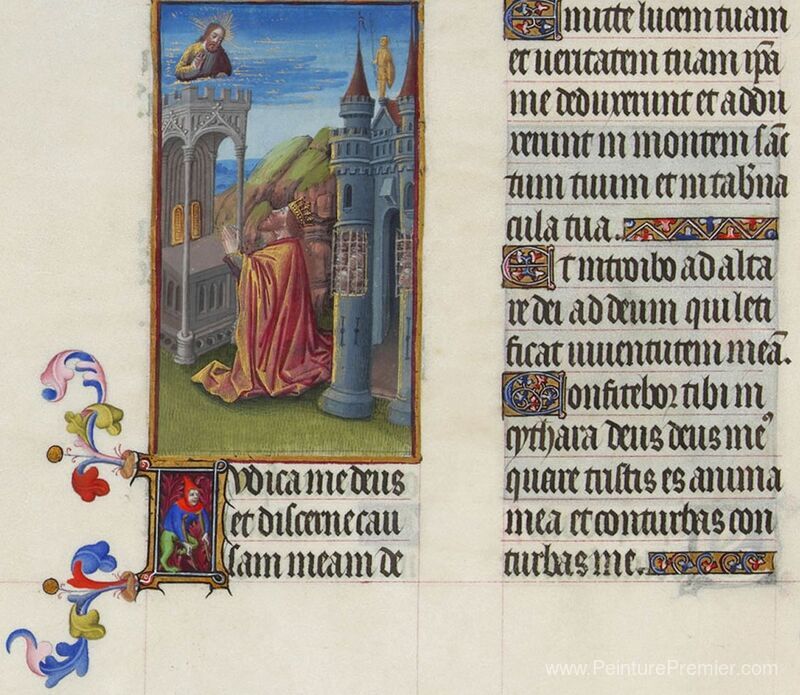 Iudica me deus
et discerne cau
sam meam de
Emitte lucem tuam
et ueritatem tuam ip̄a
me deduxerunt et addu
xerunt in montem sāc
tum tuum et in tab̄na
cula tua.
Et introibo ad alta
re dei ad deum qui leti
ficat iuuentutem meā.
Confitebor tibi in
cythara deus deus meꝰ
quare tristis es anima
mea et conturbas con
turbas me.
www.PeinturePremier.com